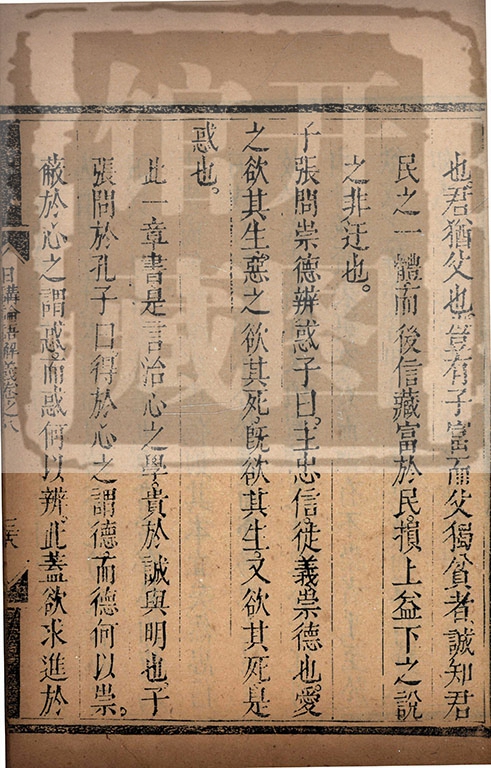 也君猶父也豈有子富而父獨貧者誠知君
民之一體而後信藏富於民損上益下之說
之非迂也。
子張問崇德辨惑子曰。主忠信徙義崇德也。愛
之欲其生。惡之欲其死。旣欲其生。又欲其死是
惑也。
此一章書是言治心之學。貴於誠與明也。子
張問於孔子曰得於心之謂德。而德何以崇。
蔽於心之謂惑。而惑何以辨。此蓋欲求進於
日講論語解義卷之八
二六